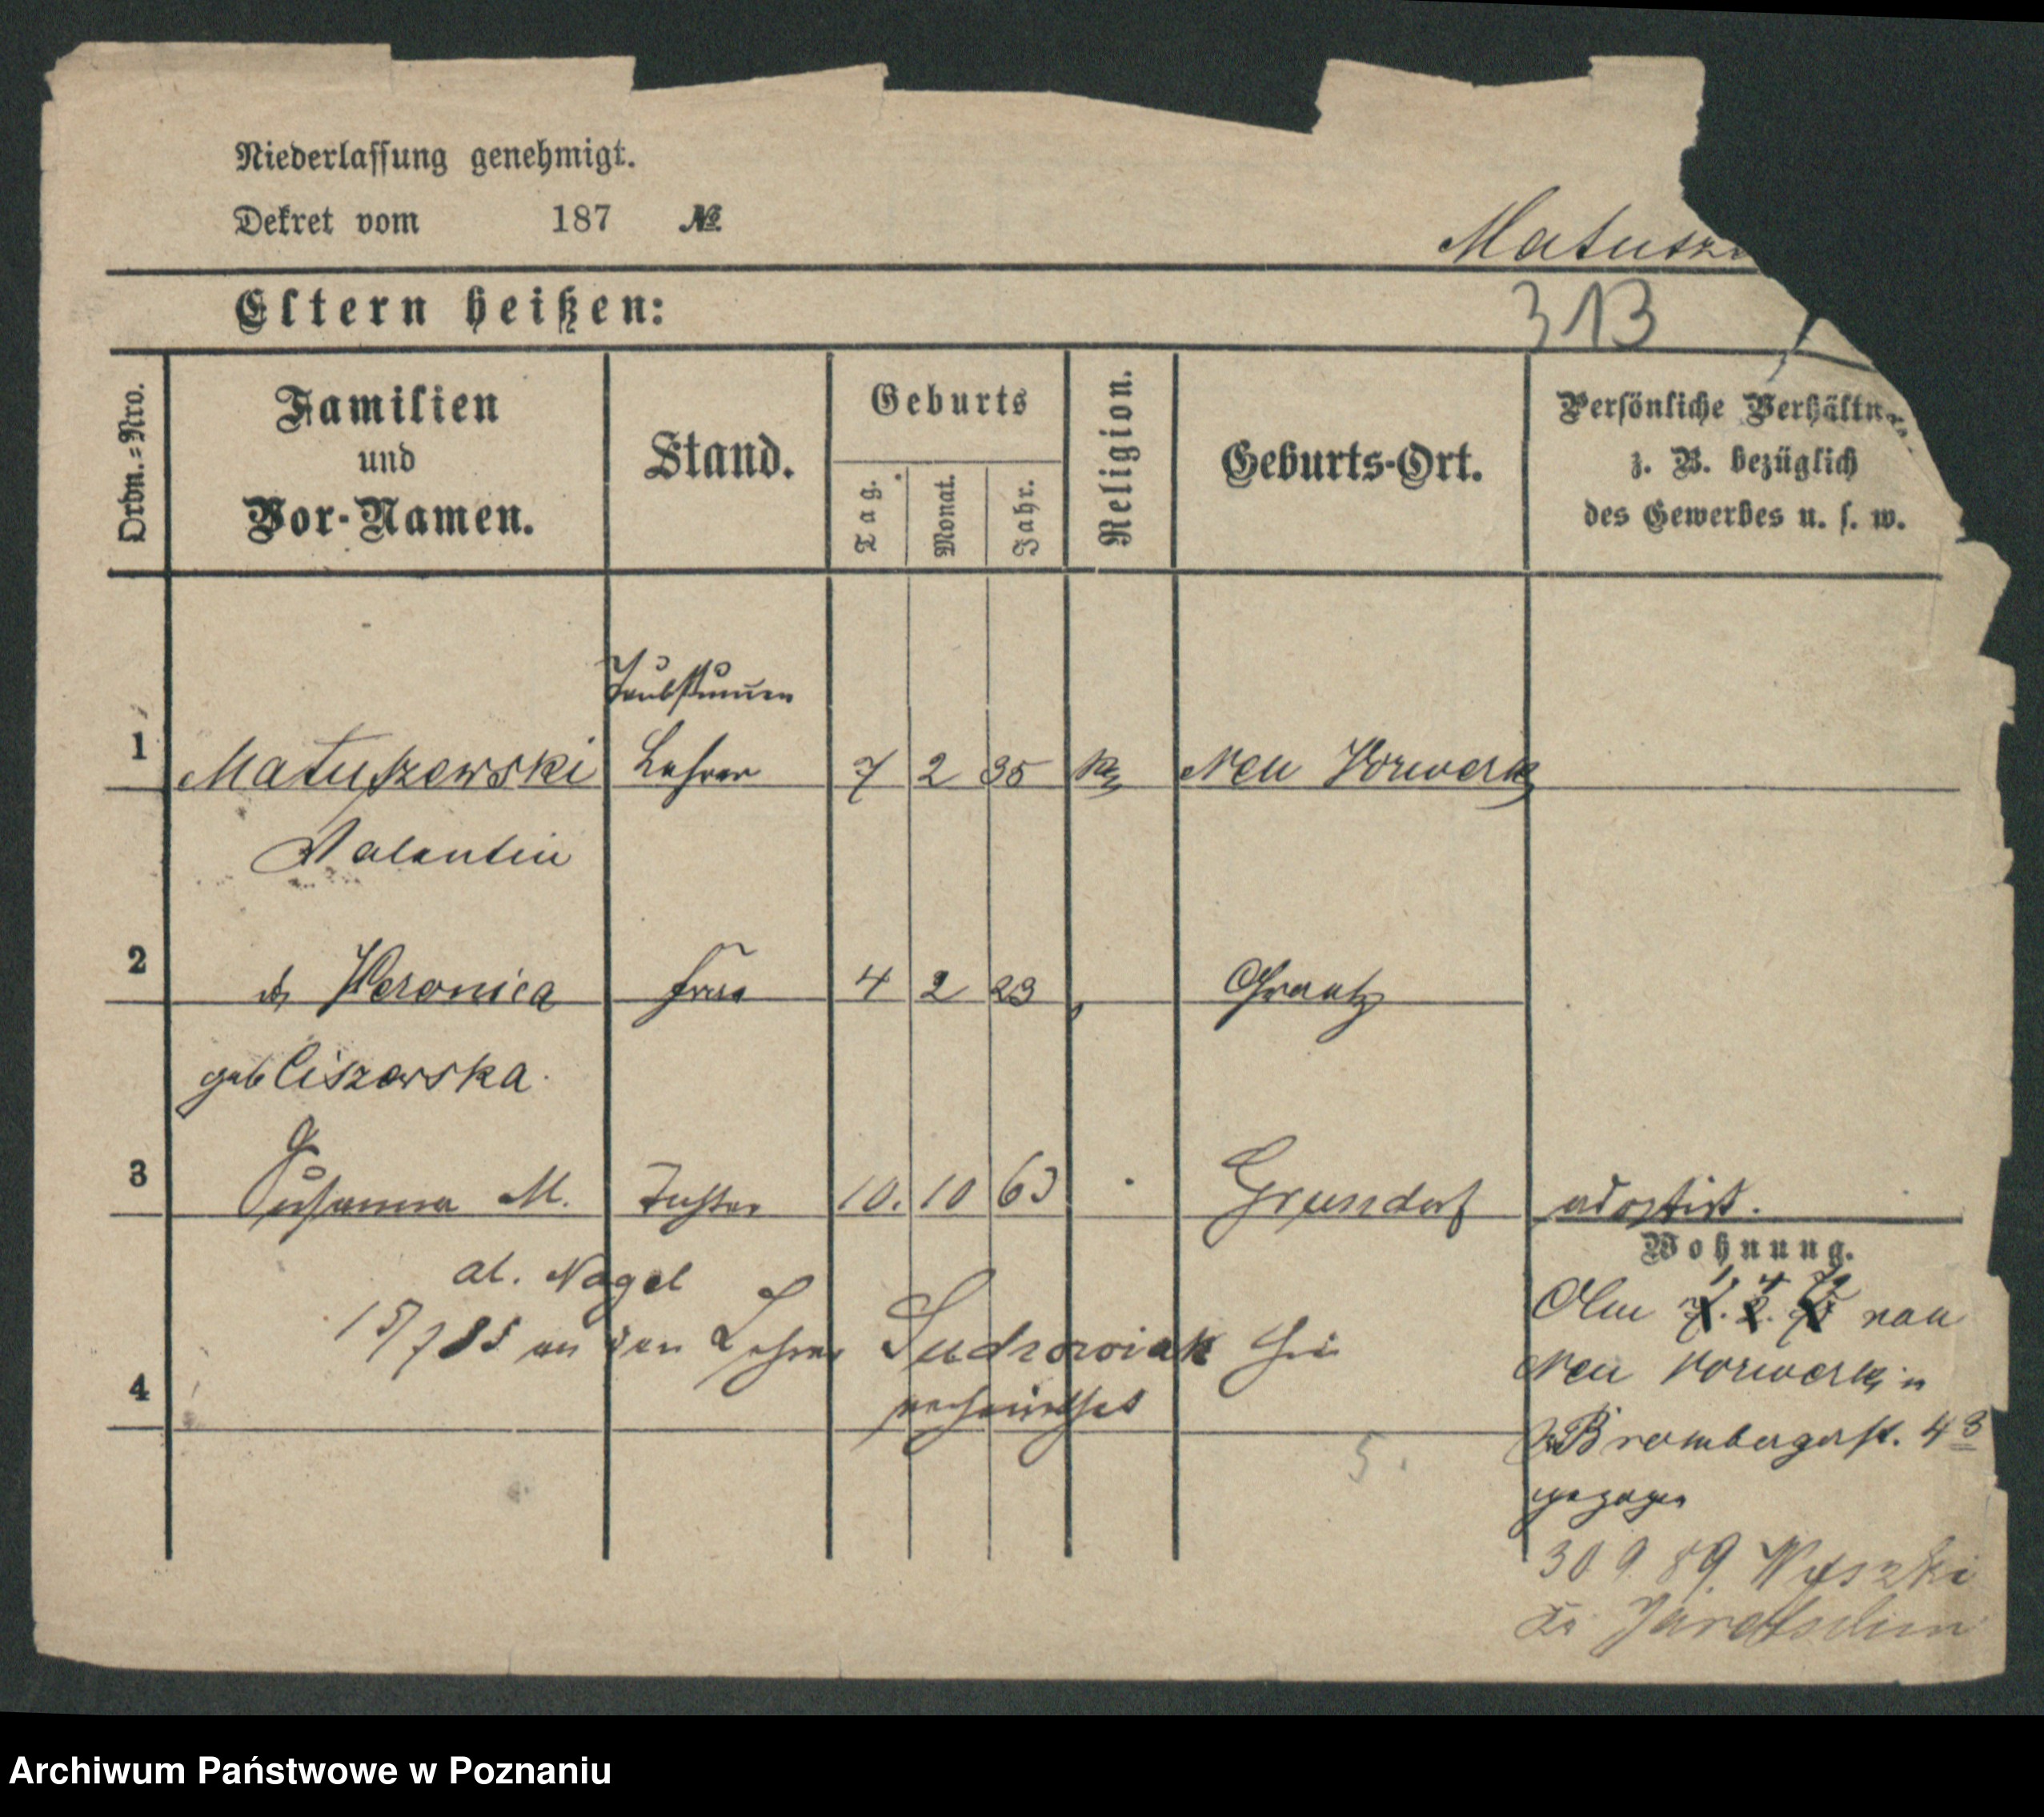 Niederlassung genehmigt.
Dekret vom 187 №
Matusz
Eltern heißen:
313
Ordn.=Nro.
Familien
und
Vor-Namen.
Stand.
Geburts
Tag.
Monat.
Jahr.
Religion.
Geburts-Ort.
Persönliche Verhältn
z. B. bezüglich
des Gewerbes u. s. w.
Taubstummen
1 Matuszewski Lehrer 7 2 35 k Neu Vorwerk
Valentin
2 Veronica Frau 4 2 23 Graetz
geb Ciszewska.
3 Susanna M. Tochter 10. 10 63 Grunsdorf adoptirt.
Wohnung.
al. Nagel
15/7 85 an den Lehrer Sudrowiak hier
verheirathet
4
Am 1. 4 72 von
Neu Vorwerk n
Brombergerst. 43
gezogen
5.
30 9 89. Wyszki
Kr. Jarotschin
Archiwum Państwowe w Poznaniu